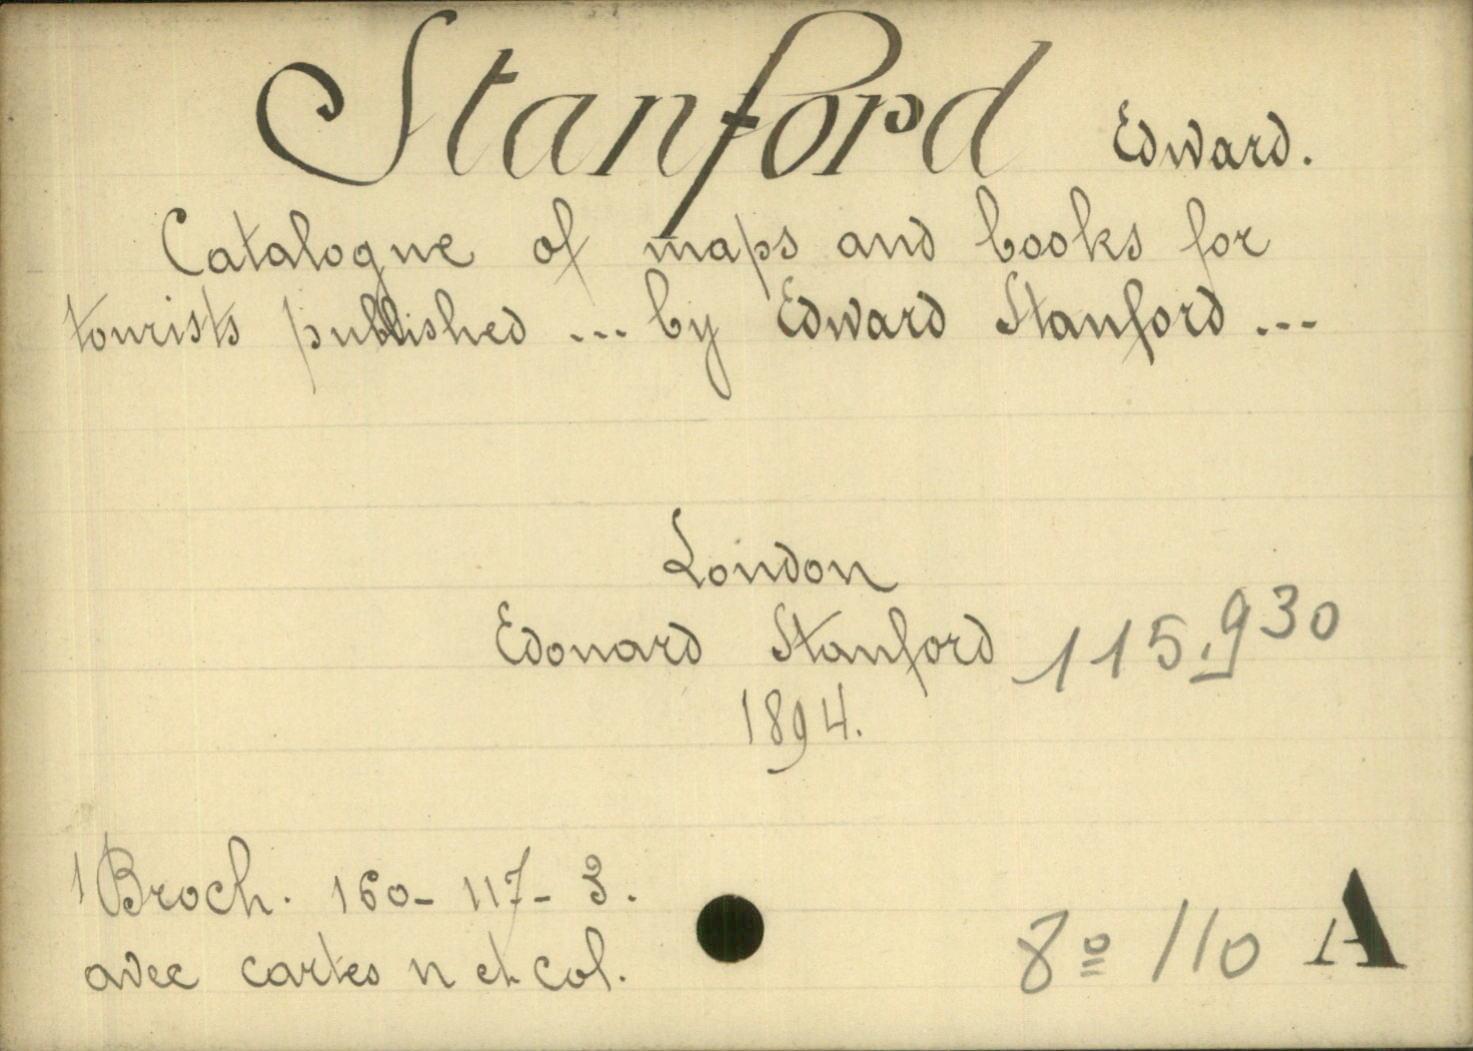 Stanford Edward.
Catalogue of maps and books for
tourists published ... by Edward Stanford ...
London
Edouard Stanford 115.930
1894.
1 Broch. 160 - 117 - 3.
avec cartes n et col.
8º 110 A